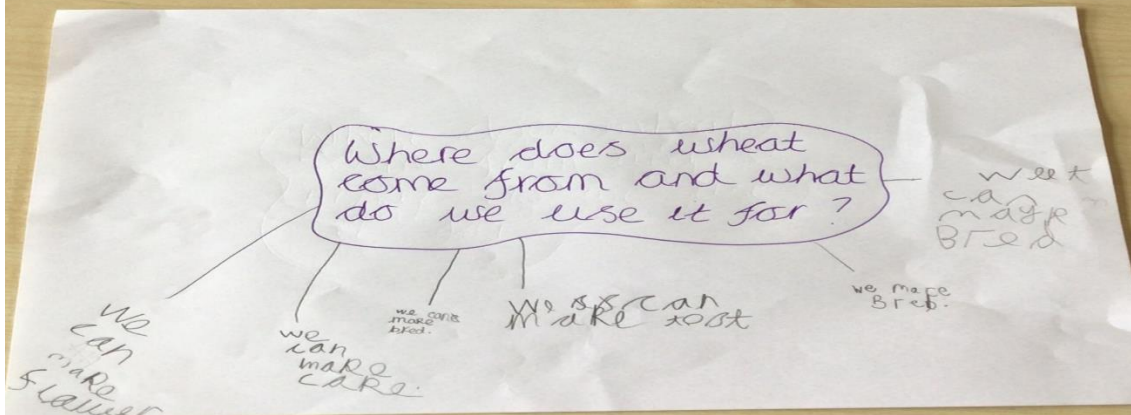 Where does wheat
come from and what
do we use it for?
weet
can
maye
Bred
we mare
Bred.
We can
make tost
we can
make
bred.
we
can
make
cake.
we
can
make
flawer